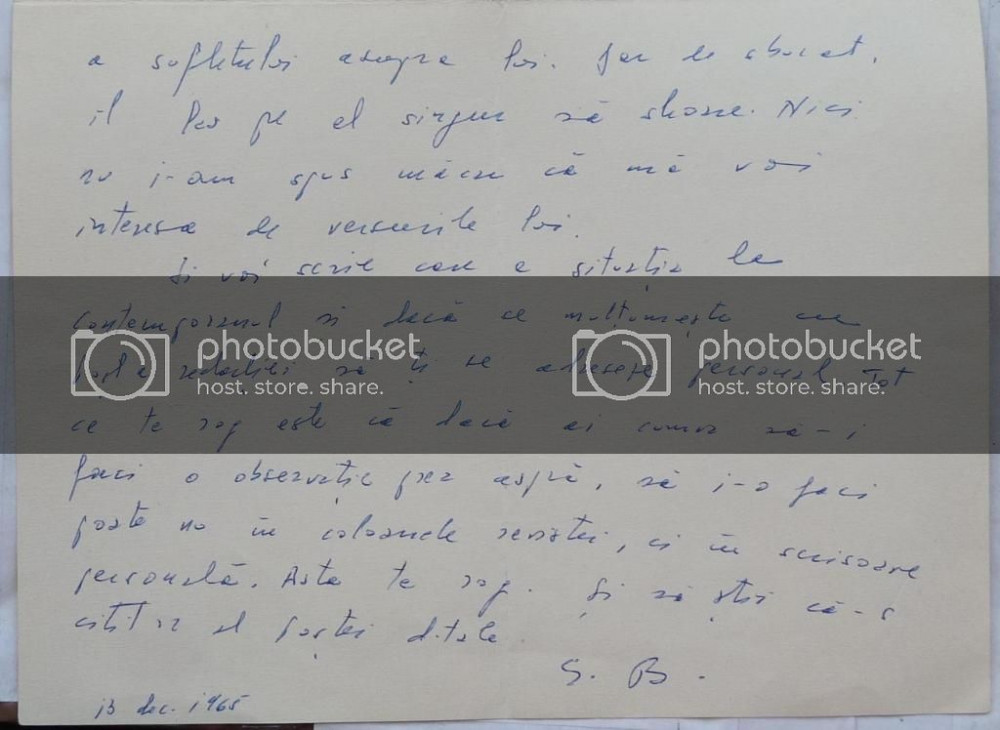 a sufletului asupra lui. Dar de abecat,
îl las pe el singur să
Nici
nu i-am spus măcar că mă voi
interesa de versurile lui.
Îi voi scrie care e situația la
Contemporanul și dacă ce mulțumește cu
photobucket photobucket
host. store. share. host. store. share.
poșta redacției să ți se adreseze personal. Tot
ce te rog este că dacă ai cumva să-i
faci o observație prea aspră, să i-o faci
poate nu în coloanele revistei, ci în scrisoare
personală. Asta te rog. Și să știi că-s
al poștei d-tale
S. B.
13 dec. 1965